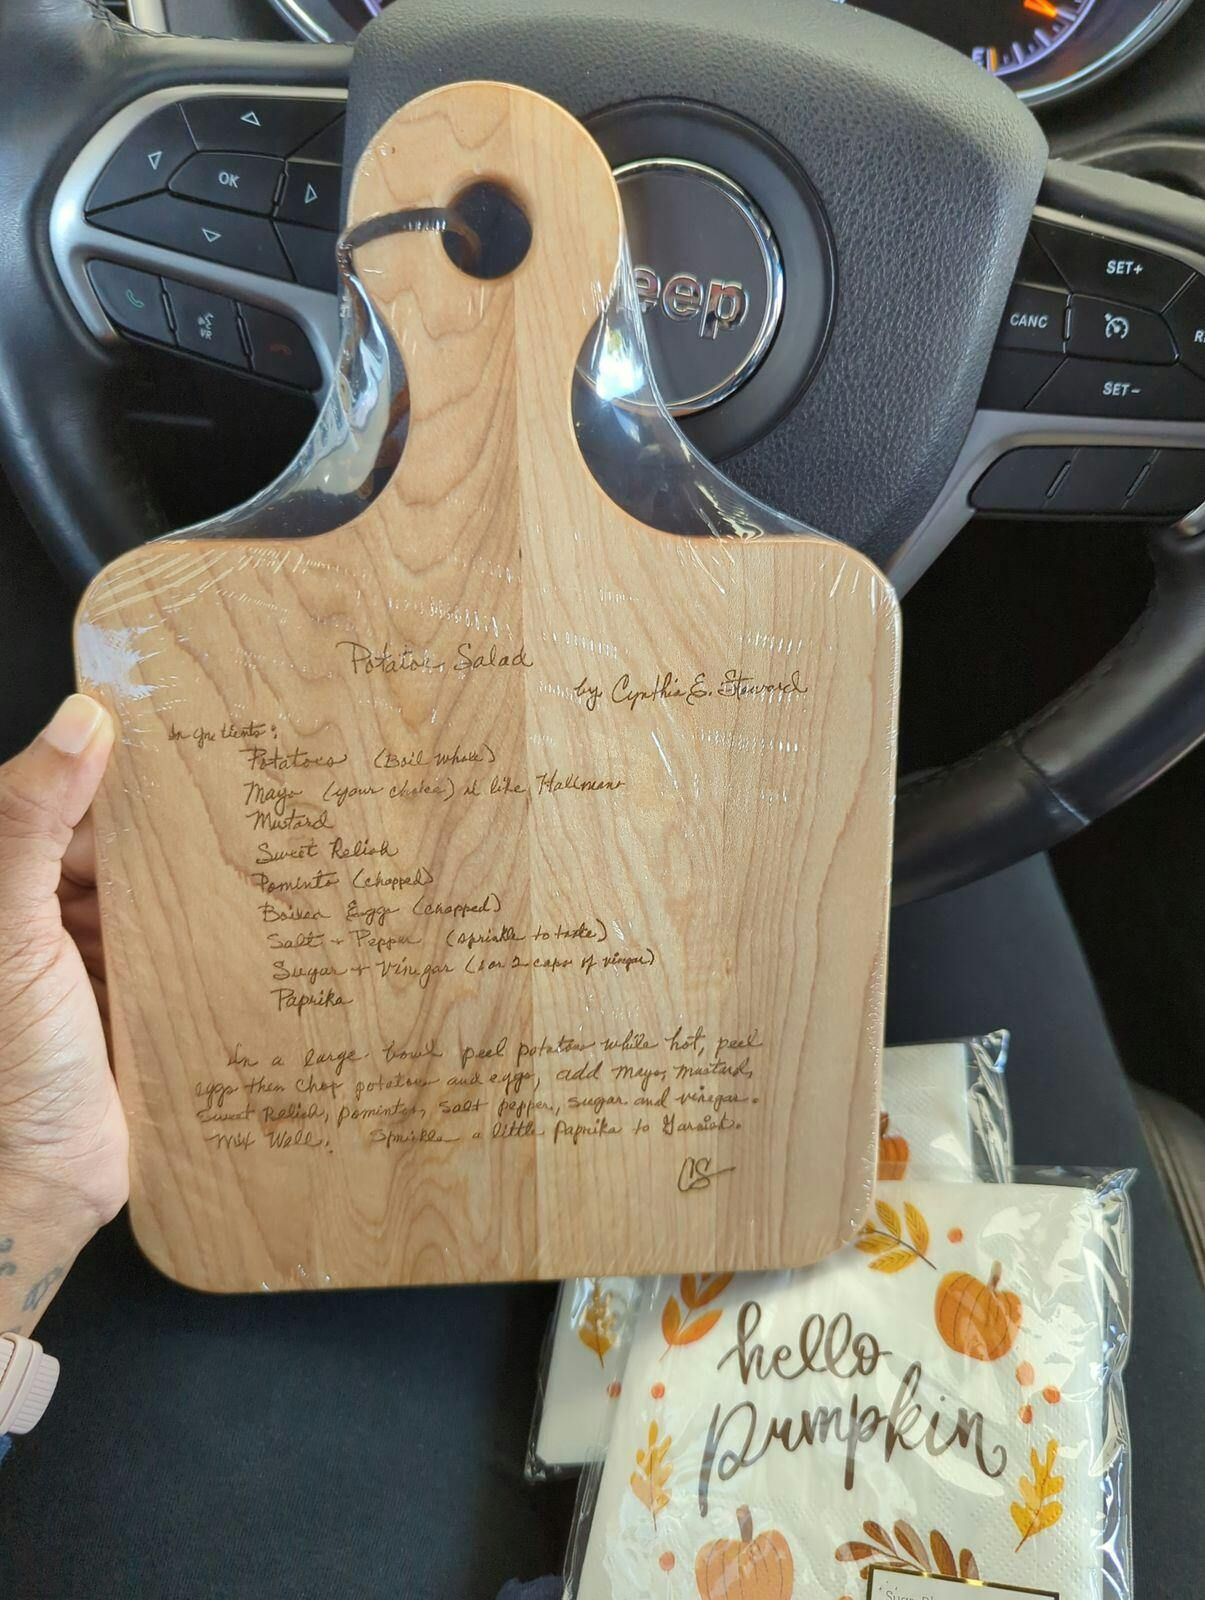 OK
VR
eep
SET+
CANC
SET-
Potatoe Salad
by Cynthia E. Steward
Ingredients:
Potatoes (Boil whole)
Mayo (your choice) I like Hallmans
Mustard
Sweet Relish
Pominto (chopped)
Boiled Eggs (chopped)
Salt + Pepper (sprinkle to taste)
Sugar + Vinegar (1 or 2 caps of vinegar)
Paprika
In a large bowl peel potatoes while hot, peel
eggs then chop potatoes and eggs, add mayo, mustard,
sweet Relish, pomintos, salt pepper, sugar and vinegar.
Mix Well. Sprinkle a little Paprika to Garnish.
CS
hello
pumpkin